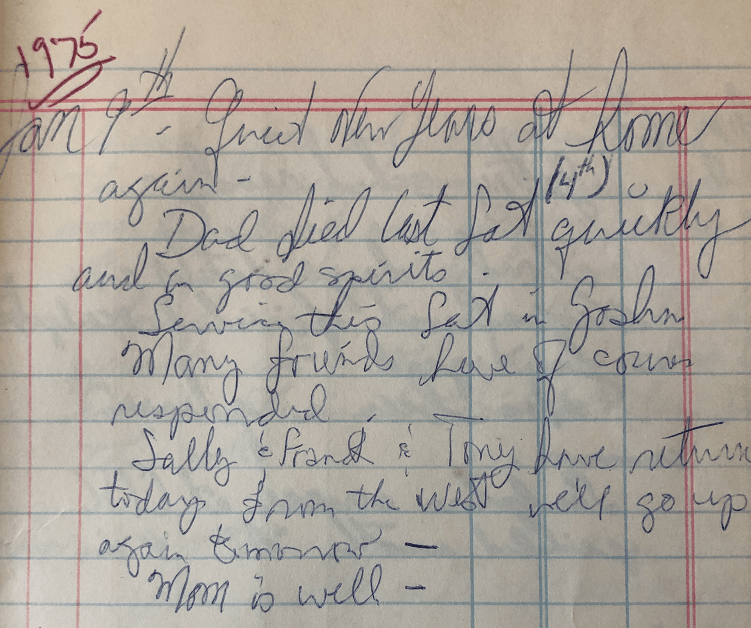 1975
Jan 9th - Quiet New Years at home
again -
(4th)
Dad died last Sat quickly
and in good spirits.
Service this Sat in Goshn
Many friends have of cours
responded.
Sally & Frank & Tony have return
today from the west we'll go up
again tomorrow —
Mom is well -